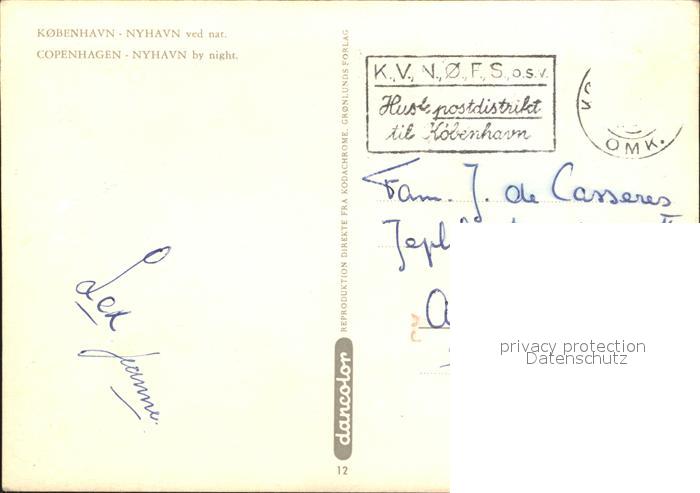 KØBENHAVN - NYHAVN ved nat.
COPENHAGEN - NYHAVN by night.
K., V., N., Ø., F., S., o.s.v.
Husk postdistrikt
til København
OMK.
Fam. J. de Casseres
privacy protection
Datenschutz
Jeanne
REPRODUKTION DIREKTE FRA KODACHROME. GRØNLUNDS FORLAG
dancolor
12